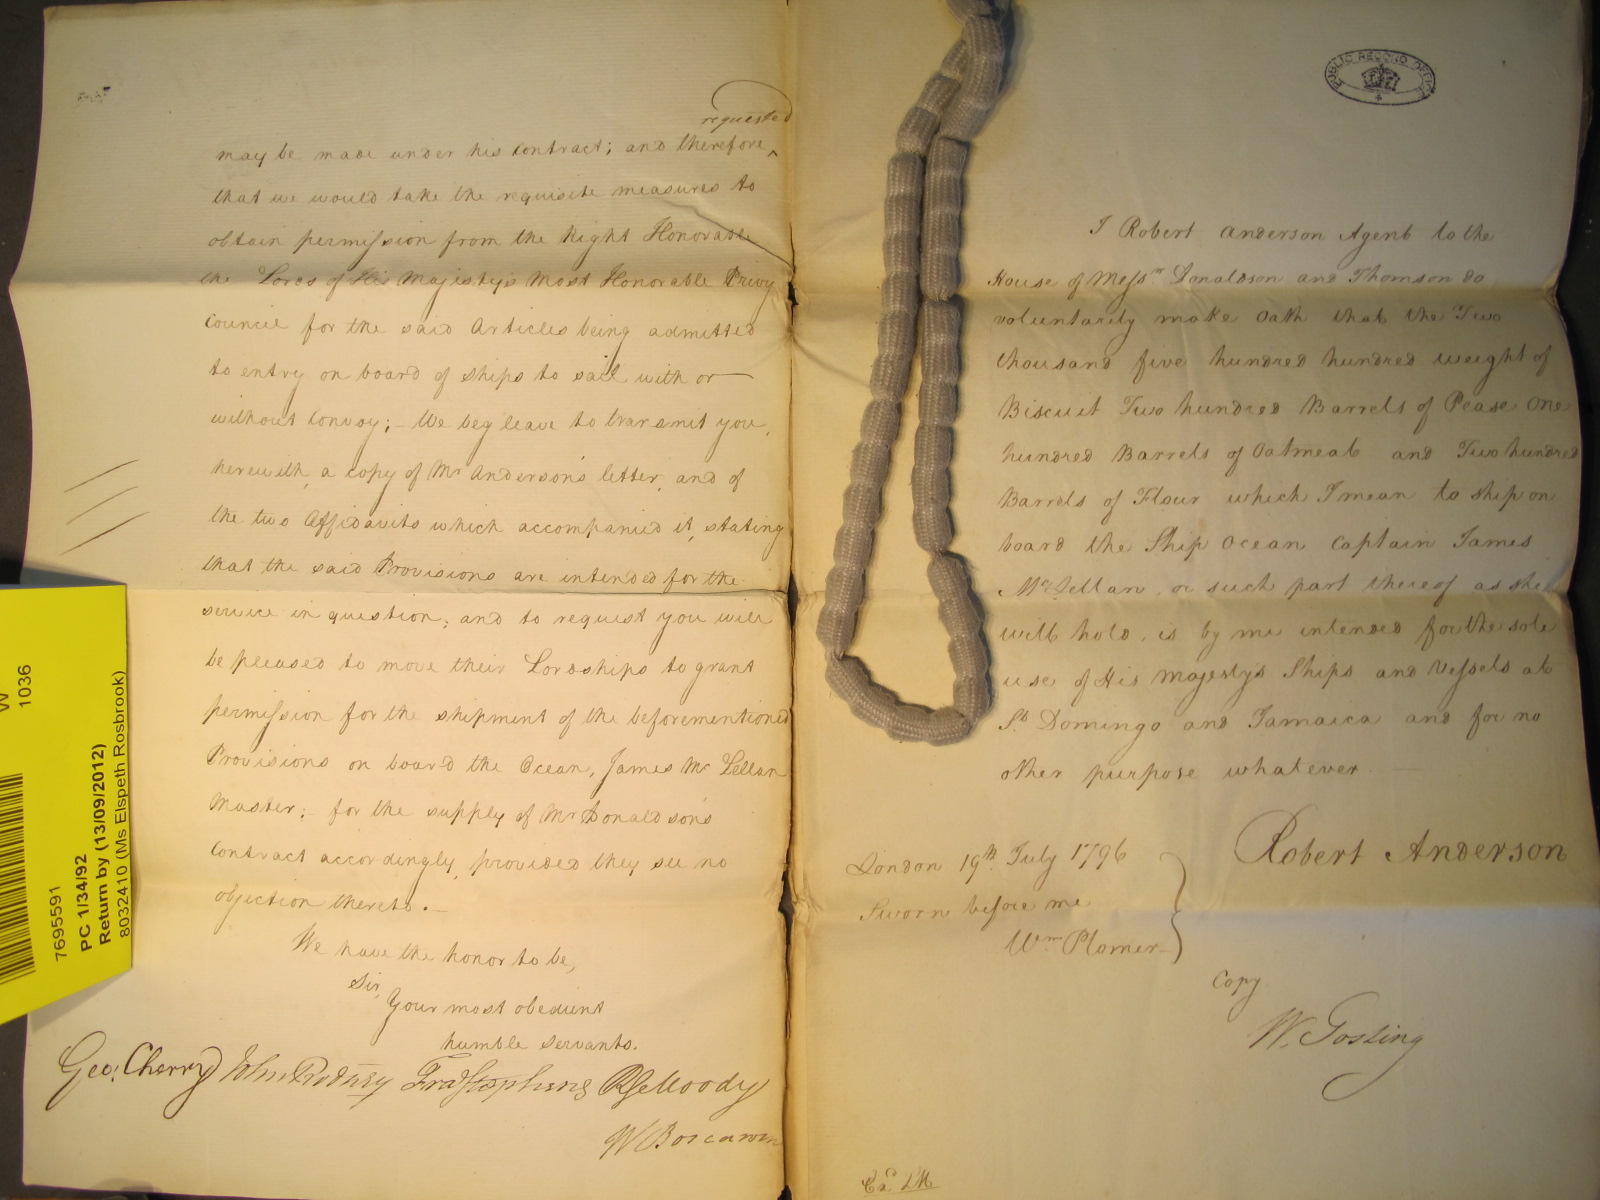 requested
may be made under his Contract; and therefore ^
that we would take the requisite measures to
obtain permission from the Right Honorable
the Lords of His Majesty's Most Honorable Privy
Council for the said Articles being admitted
to entry on board of Ships to sail with or
without Convoy; – We beg leave to transmit you,
herewith, a copy of Mr Anderson's letter, and of
the two Affidavits which accompanied it, stating
that the said Provisions are intended for the
service in question; and to request you will
be pleased to move their Lordships to grant
permission for the shipment of the beforementioned
Provisions on board the Ocean, James Mc Lellan
Master; – for the supply of Mr Donaldson's
Contract accordingly, provided they see no
objection thereto. –
We have the honor to be,
Sir,
Your most obedient
humble servants.
Geo: Cherry Fras Stephens R S Moody
W Boscawen
W
1036
7695591
PC 1/34/92
Return by (13/09/2012)
8032410 (Ms Elspeth Rosbrook)
PUBLIC RECORD OFFICE
I Robert Anderson Agent to the
House of Messrs Donaldson and Thomson do
voluntarily make Oath that the Two
thousand five hundred hundred weight of
Biscuit Two hundred Barrels of Pease One
hundred Barrels of Oatmeal and Two hundred
Barrels of Flour which I mean to Ship on
board the Ship Ocean Captain James
McLellan, or such part thereof as she
will hold, is by me intended for the sole
use of His Majesty's Ships and Vessels at
St Domingo and Jamaica and for no
other purpose whatever. —
Robert Anderson
London 19th July 1796
Sworn before me
Wm Plomer
Copy
W. Gosling